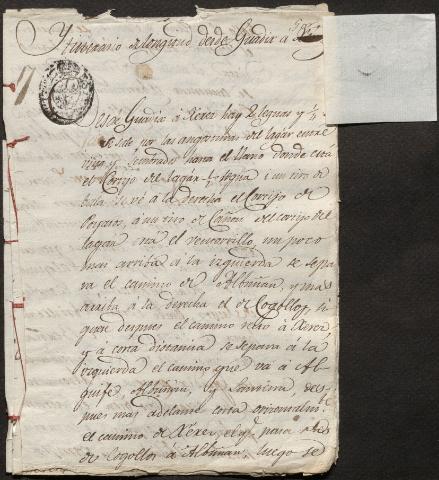 Ytinerario o longitud desde Guadix a
Desde Guadix a Xerez hay 2 leguas y 1/2
se sale por las angosturas del lagar entre
viñas y sembrados hasta el llano donde está
el Cortijo del lagar 1 legua
bala se vé a la derecha el Cortijo de
a un tiro de Cañon del cortijo del
lagar está el ventorrillo, un poco
mas arriba á la izquierda se sepa
ra el camino de Albuñan, y mas
arriba á la derecha el de Cogollos, si
gue despues el camino recto á Xerez
y á corta distancia se separa á la
izquierda el camino que va á Al
quife, Aldeire, y Lanteira des
pues mas adelante corta
el camino de Xerez, el qᵉ pasa
de Cogollos á Albuñan, luego se